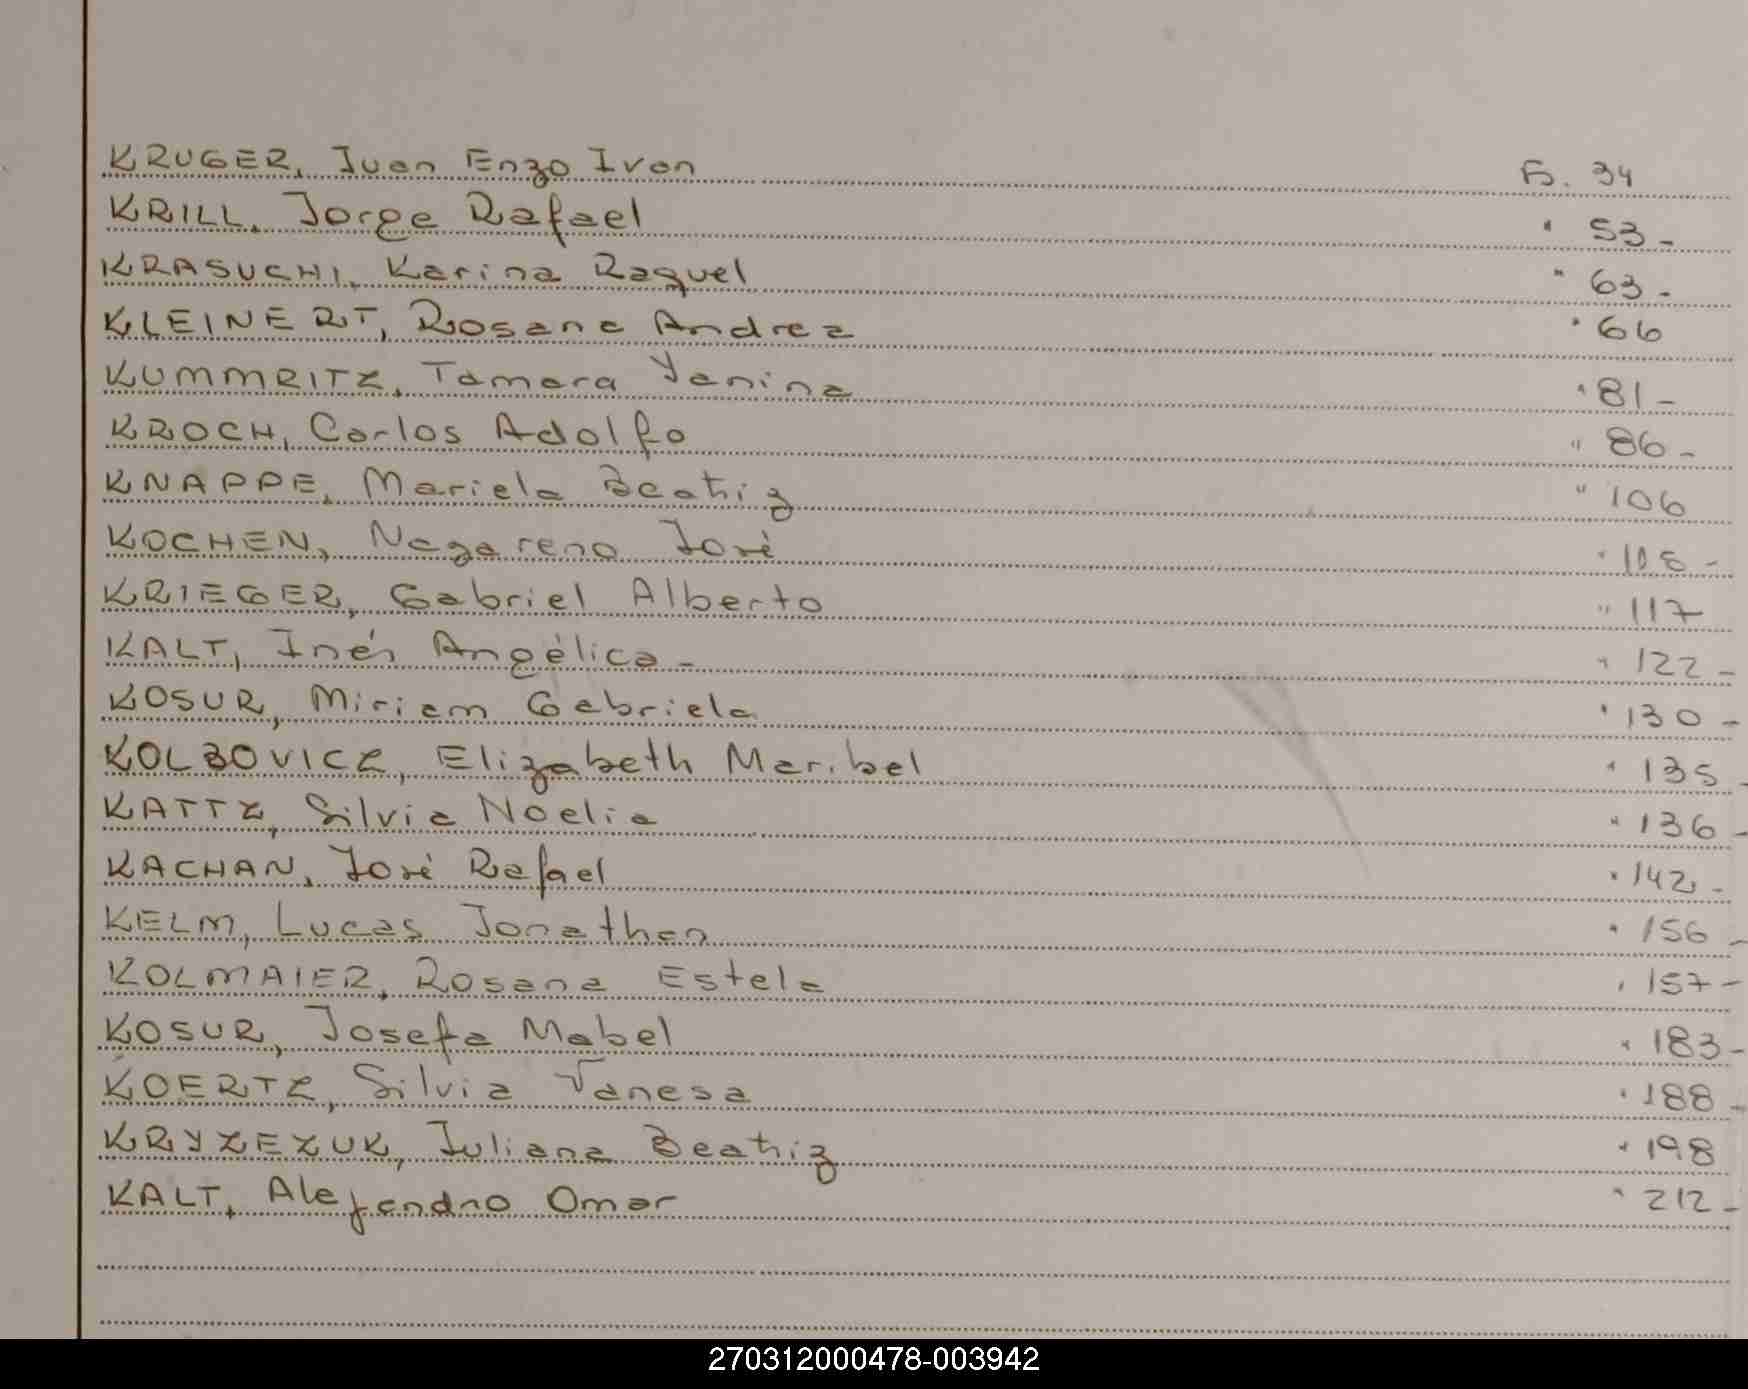 KRUGER, Juan Enzo Ivan Fs. 34
KRILL, Jorge Rafael " 53-
KRASUCHI, Karina Raquel " 63-
KLEINERT, Rosana Andrea " 66
KUMMRITZ, Tamara Yanina " 81-
KROCH, Carlos Adolfo " 86-
KNAPPE, Mariela Beatriz " 106
KOCHEN, Nazareno José "
KRIEGER, Gabriel Alberto " 117
KALT, Inés Angélica- " 122-
KOSUR, Miriam Gabriela " 130-
KOLBOVICZ, Elizabeth Maribel " 135-
KATTZ, Silvia Noelia " 136-
KACHAN, José Rafael " 142-
KELM, Lucas Jonathan " 156-
KOLMAIER, Rosana Estela " 157-
KOSUR, Josefa Mabel " 183-
KOERTZ, Silvia Vanesa " 188-
KRYZEZUK, Juliana Beatriz " 198
KALT, Alejandro Omar " 212-
270312000478-003942